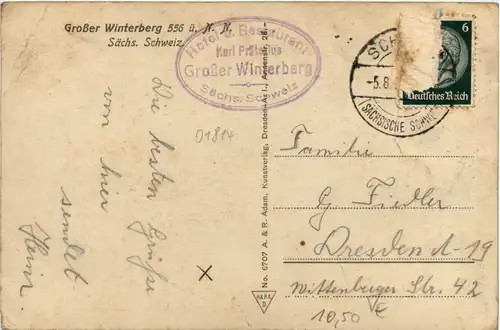 Großer Winterberg 556 ü. N. N.
Sächs. Schweiz
Hotel u. Restaurant
Karl
Großer Winterberg
Sächs. Schweiz
01814
Die besten Grüße
von hier
sendet
Heinz
No. 6707 A. & R. Adam, Kunstverlag, Dresden-A.
-5.8
(SÄCHSISCHE SCHWEIZ)
6
Deutsches Reich
Familie
G Fiedler
Dresden A-19
Wittenberger Str. 42
10,50 €